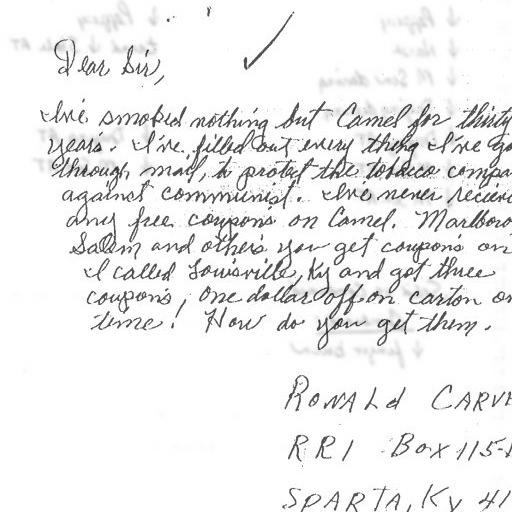 Dear Sir,
I've smoked nothing but Camel for thirty
years. I've filled out every thing I've go
through mail, to protect the tobacco compa
against communist. I've never reciev
any free coupon's on Camel. Marlboro
Salem and other's you get coupon's on
I called Louisville, Ky and got three
coupon's, one dollar off on carton on
time! How do you get them.
RONALd CARVE
RR1 Box 115-
SPARTA, Ky 41